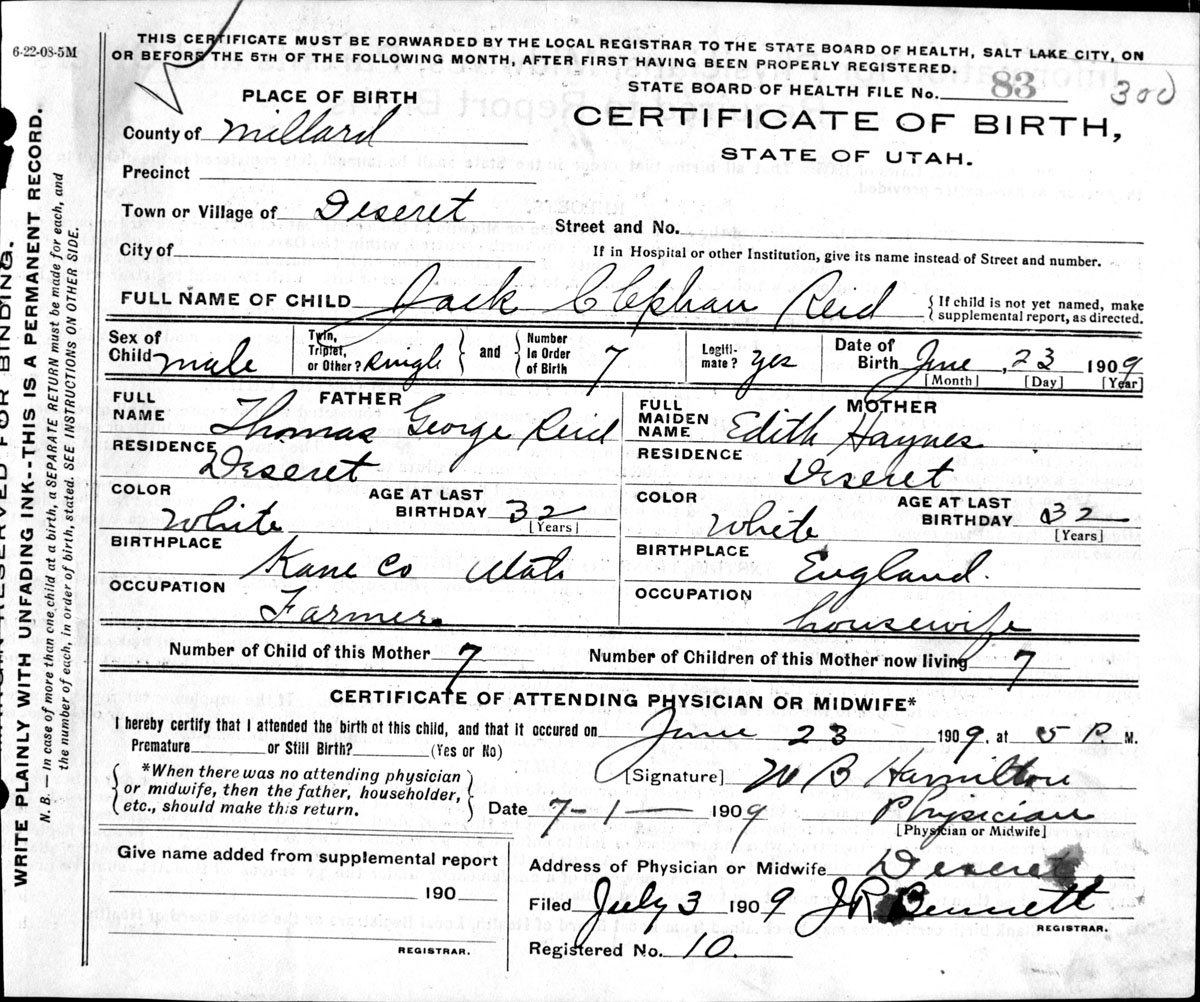 6-22-08-5M
THIS CERTIFICATE MUST BE FORWARDED BY THE LOCAL REGISTRAR TO THE STATE BOARD OF HEALTH, SALT LAKE CITY, ON
OR BEFORE THE 5TH OF THE FOLLOWING MONTH, AFTER FIRST HAVING BEEN PROPERLY REGISTERED.
STATE BOARD OF HEALTH FILE No. 83 300
PLACE OF BIRTH
CERTIFICATE OF BIRTH,
STATE OF UTAH.
County of Millard
Precinct
Town or Village of Deseret
Street and No.
City of
If in Hospital or other Institution, give its name instead of Street and number.
FULL NAME OF CHILD Jack Clephan Reid
{ If child is not yet named, make
supplemental report, as directed.
Sex of Child male
Twin, Triplet, or Other? single } and { Number In Order of Birth 7
Legiti-mate? yes
Date of Birth June, 23 1909
[Month] [Day] [Year]
FATHER
FULL NAME Thomas George Reid
RESIDENCE Deseret
COLOR White
AGE AT LAST BIRTHDAY 32
[Years]
BIRTHPLACE Kane Co Utah
OCCUPATION Farmer.
MOTHER
FULL MAIDEN NAME Edith Haynes
RESIDENCE Deseret
COLOR White
AGE AT LAST BIRTHDAY 32
[Years]
BIRTHPLACE England.
OCCUPATION housewife
Number of Child of this Mother 7 Number of Children of this Mother now living 7
CERTIFICATE OF ATTENDING PHYSICIAN OR MIDWIFE*
I hereby certify that I attended the birth of this child, and that it occured on June 23 1909, at 5 P. M.
Premature or Still Birth? (Yes or No)
{ *When there was no attending physician
or midwife, then the father, householder,
etc., should make this return. }
[Signature] W B Hamilton
Date 7-1- 1909 Physician
[Physician or Midwife]
Give name added from supplemental report
190
REGISTRAR.
Address of Physician or Midwife Deseret
Filed July 3 1909 J R Bennett
REGISTRAR.
Registered No. 10.
RESERVED FOR BINDING.
WRITE PLAINLY WITH UNFADING INK--THIS IS A PERMANENT RECORD.
N. B.—In case of more than one child at a birth, a SEPARATE RETURN must be made for each, and
the number of each, in order of birth, stated. SEE INSTRUCTIONS ON OTHER SIDE.